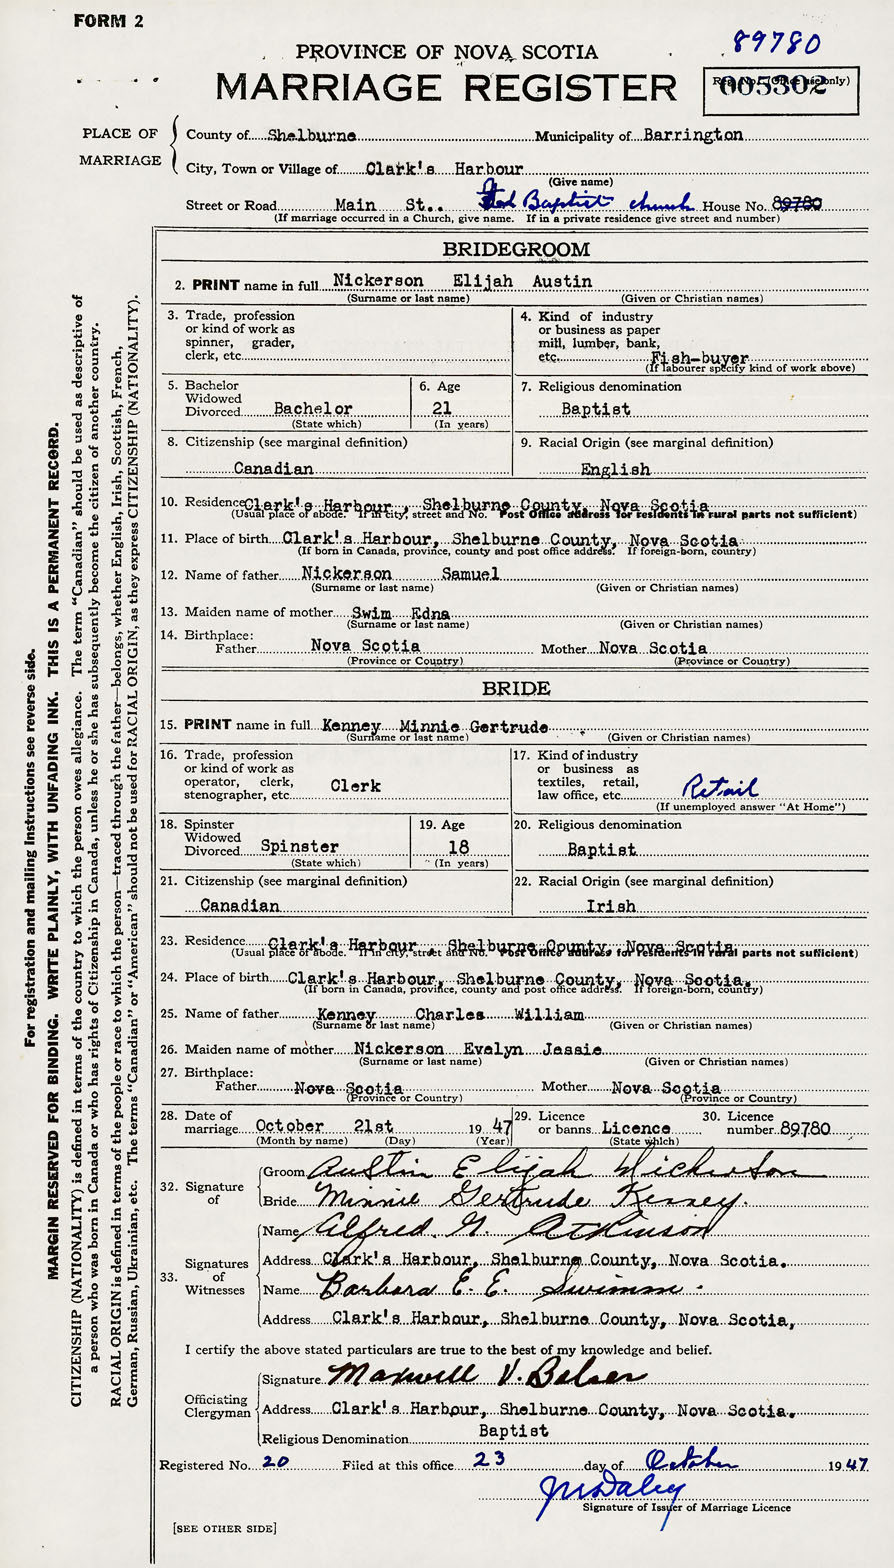 FORM 2
89780
PROVINCE OF NOVA SCOTIA
MARRIAGE REGISTER
Reg. No. (Office use only)
005302
PLACE OF MARRIAGE
County of Shelburne Municipality of Barrington
City, Town or Village of Clark's Harbour
(Give name)
Street or Road Main St.. Baptist church House No. 89780
(If marriage occurred in a Church, give name. If in a private residence give street and number)
BRIDEGROOM
2. PRINT name in full Nickerson Elijah Austin
(Surname or last name) (Given or Christian names)
3. Trade, profession or kind of work as spinner, grader, clerk, etc.
4. Kind of industry or business as paper mill, lumber, bank, etc. Fish-buyer
(If labourer specify kind of work above)
5. Bachelor Widowed Divorced Bachelor
(State which)
6. Age 21
(In years)
7. Religious denomination
Baptist
8. Citizenship (see marginal definition)
Canadian
9. Racial Origin (see marginal definition)
English
10. Residence Clark's Harbour, Shelburne County, Nova Scotia
(Usual place of abode. If in city, street and No. Post Office address for residents in rural parts not sufficient)
11. Place of birth Clark's Harbour, Shelburne County, Nova Scotia
(If born in Canada, province, county and post office address. If foreign-born, country)
12. Name of father Nickerson Samuel
(Surname or last name) (Given or Christian names)
13. Maiden name of mother Swim Edna
(Surname or last name) (Given or Christian names)
14. Birthplace:
Father Nova Scotia Mother Nova Scotia
(Province or Country) (Province or Country)
BRIDE
15. PRINT name in full Kenney Minnie Gertrude
(Surname or last name) (Given or Christian names)
16. Trade, profession or kind of work as operator, clerk, stenographer, etc. Clerk
17. Kind of industry or business as textiles, retail, law office, etc. Retail
(If unemployed answer "At Home")
18. Spinster Widowed Divorced Spinster
(State which)
19. Age 18
(In years)
20. Religious denomination
Baptist
21. Citizenship (see marginal definition)
Canadian
22. Racial Origin (see marginal definition)
Irish
23. Residence Clark's Harbour Shelburne County, Nova Scotia
(Usual place of abode. If in city, street and No. Post Office address for residents in rural parts not sufficient)
24. Place of birth Clark's Harbour, Shelburne County, Nova Scotia.
(If born in Canada, province, county and post office address. If foreign-born, country)
25. Name of father Kenney Charles William
(Surname or last name) (Given or Christian names)
26. Maiden name of mother Nickerson Evelyn Jessie
(Surname or last name) (Given or Christian names)
27. Birthplace:
Father Nova Scotia Mother Nova Scotia
(Province or Country) (Province or Country)
28. Date of marriage October 21st 1947
(Month by name) (Day) (Year)
29. Licence or banns Licence
(State which)
30. Licence number 89780
32. Signature of
Groom Austin Elijah Nickerson
Bride Minnie Gertrude Kenney.
33. Signatures of Witnesses
Name Alfred N. Atkinson
Address Clark's Harbour, Shelburne County, Nova Scotia.
Name Barbara E. E. Swimm.
Address Clark's Harbour, Shelburne County, Nova Scotia,
I certify the above stated particulars are true to the best of my knowledge and belief.
Officiating Clergyman
Signature Maxwell V. Bolser
Address Clark's Harbour, Shelburne County, Nova Scotia.
Religious Denomination Baptist
Registered No. 20 Filed at this office 23 day of October 1947
Signature of Issuer of Marriage Licence
[SEE OTHER SIDE]
For registration and mailing instructions see reverse side.
MARGIN RESERVED FOR BINDING. WRITE PLAINLY, WITH UNFADING INK. THIS IS A PERMANENT RECORD.
CITIZENSHIP (NATIONALITY) is defined in terms of the country to which the person owes allegiance. The term "Canadian" should be used as descriptive of
a person who was born in Canada or who has rights of Citizenship in Canada, unless he or she has subsequently become the citizen of another country.
RACIAL ORIGIN is defined in terms of the people or race to which the person—traced through the father—belongs, whether English, Irish, Scottish, French,
German, Russian, Ukrainian, etc. The terms "Canadian" or "American" should not be used for RACIAL ORIGIN, as they express CITIZENSHIP (NATIONALITY).